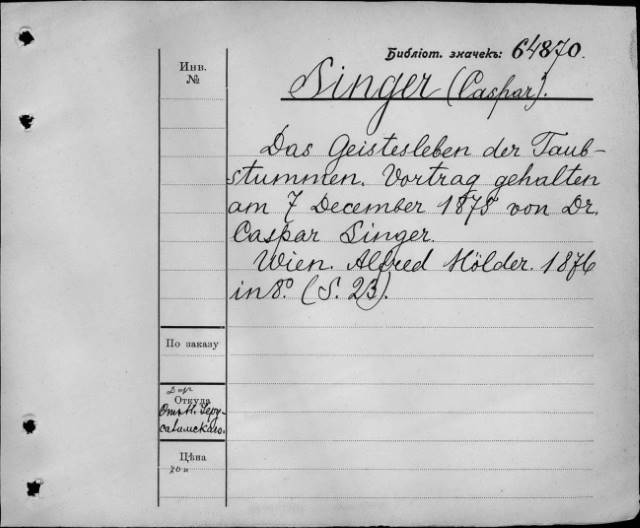 Библіот. значекъ: 64870.
Инв.
№
Singer (Caspar).
Das Geistesleben der Taub-
stummen. Vortrag gehalten
am 7 December 1875 von Dr.
Caspar Singer.
Wien. Alfred Hölder. 1876
in 8.° (S. 23).
По заказу
Дар
Откуда
Отъ Н. Іеру-
салимскаго.
Цѣна